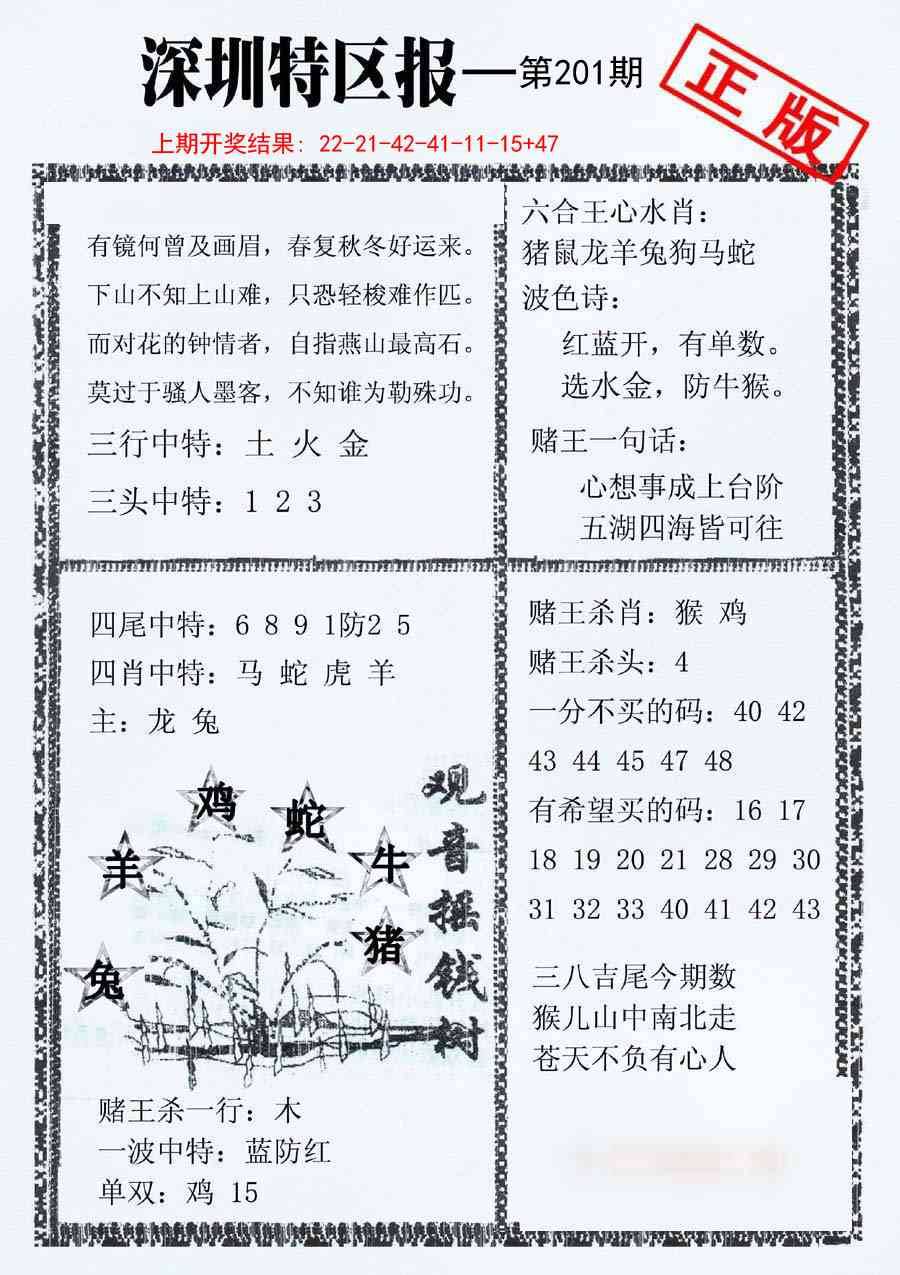 深圳特区报—第201期
正版
上期开奖结果：22-21-42-41-11-15+47
有镜何曾及画眉，春复秋冬好运来。
下山不知上山难，只恐轻梭难作匹。
而对花的钟情者，自指燕山最高石。
莫过于骚人墨客，不知谁为勒殊功。
三行中特：土 火 金
三头中特：1 2 3
六合王心水肖：
猪鼠龙羊兔狗马蛇
波色诗：
红蓝开，有单数。
选水金，防牛猴。
赌王一句话：
心想事成上台阶
五湖四海皆可往
四尾中特：6 8 9 1防2 5
四肖中特：马 蛇 虎 羊
主：龙 兔
鸡
蛇
羊
牛
猪
兔
观音摇钱树
赌王杀一行：木
一波中特：蓝防红
单双：鸡 15
赌王杀肖：猴 鸡
赌王杀头：4
一分不买的码：40 42
43 44 45 47 48
有希望买的码：16 17
18 19 20 21 28 29 30
31 32 33 40 41 42 43
三八吉尾今期数
猴儿山中南北走
苍天不负有心人